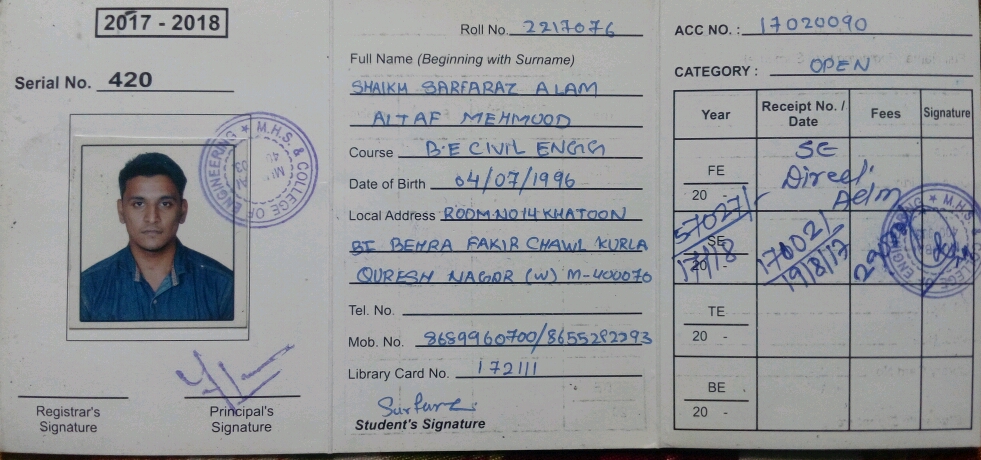 2017 - 2018
Serial No. 420
M.H.S. & COLLEGE OF ENGINEERING
Registrar's
Signature
Principal's
Signature
Roll No. 2217076
Full Name (Beginning with Surname)
SHAIKH SARFARAZ ALAM
ALTAF MEHMOOD
Course B.E CIVIL ENGG
Date of Birth 04/07/1996
Local Address ROOM.NO 14 KHATOON
BI BEHRA FAKIR CHAWL KURLA
QURESH NAGAR (W) M-400070
Tel. No.
Mob. No. 8689960700/8655282293
Library Card No. 172111
Student's Signature
ACC NO. : 17020090
CATEGORY : OPEN
Year Receipt No. / Date Fees Signature
FE
20 -
SE
Direct
Adm
SE
20
57027/-
17/18
17002/
19/8/17
M.H.S
TE
20 -
BE
20 -